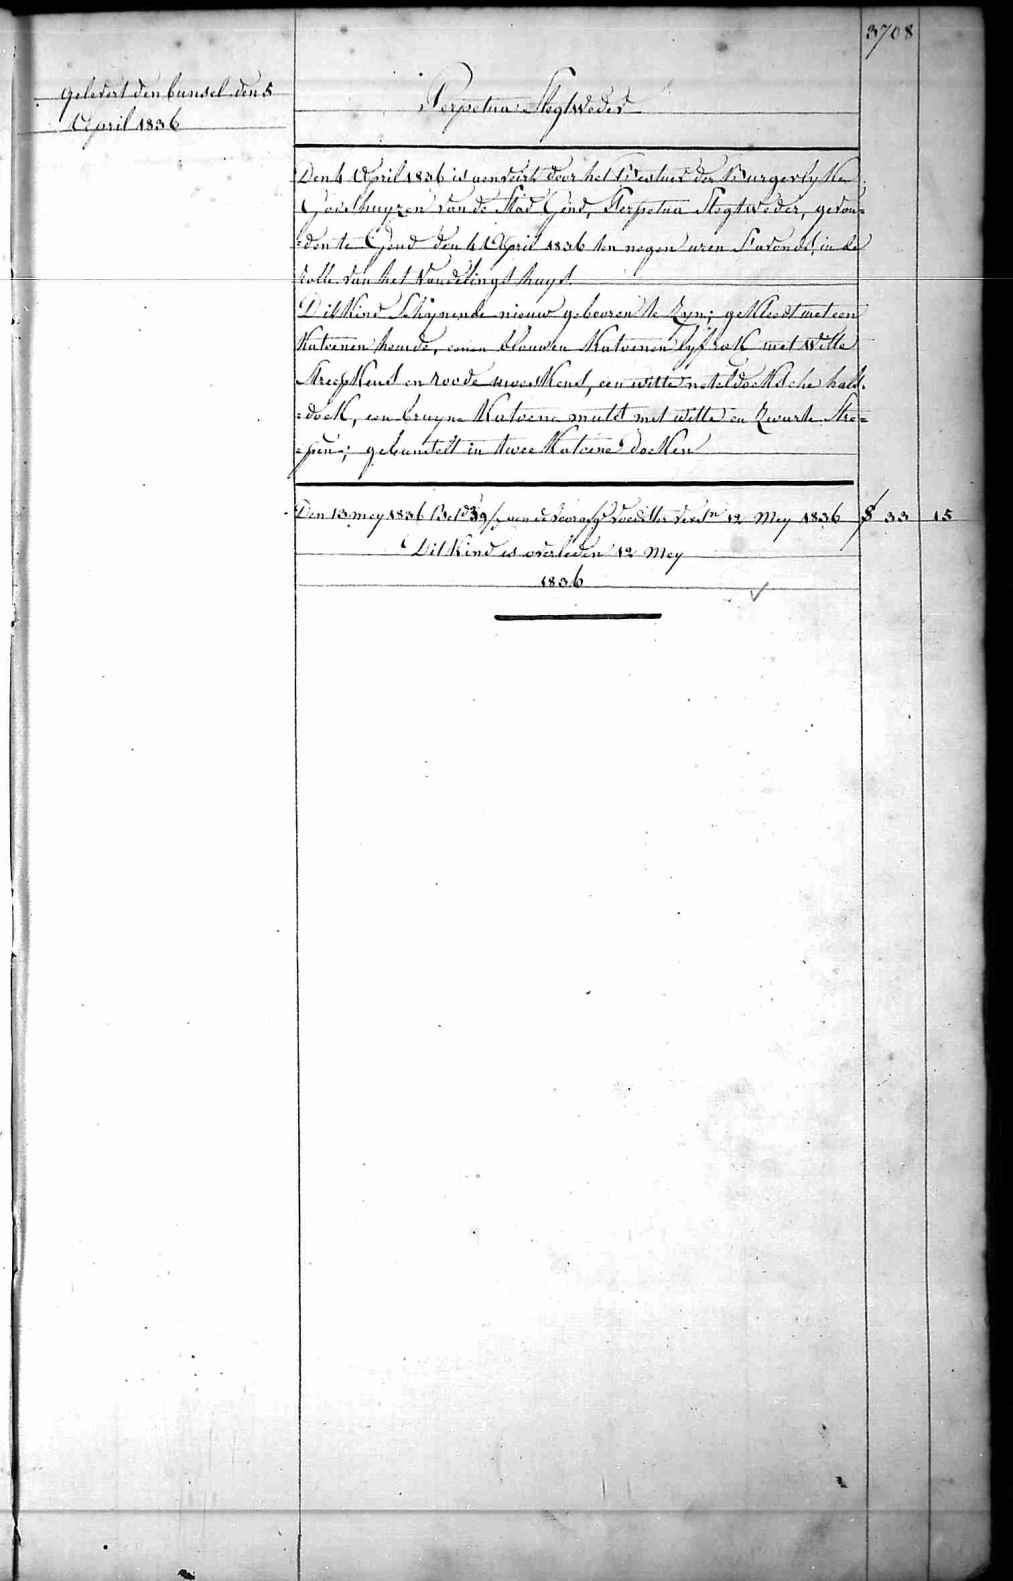 3708
gelevert den bunsel den 5
April 1836
Perpetua Slegtweder
Den 4 April 1836 is aenveirt door het Bestuer der Burgerlyke
Godshuyzen van de Stad Gend, Perpetua Slegtweder, gevon=
=den te Gend den 4 April 1836 ten negen uren s'avonds, in de
rolle van het Vondelingshuys.
Dit Kind Schynende nieuw gebooren te Zyn; gekleedt met een
Katoenen hemde, eenen blauwen Katoenen lyfrok met witte
Streepkens en roode, een witte neteldoeksche hals=
=doek, een bruyne Katoene muts met witte en Zwarte Stre=
=pen; gebunselt in twee Katoene doeken
Den 13 mey 1836 Bet aen de voedster 12 Mey 1836 33 15
Dit Kind is overleden 12 Mey
1836